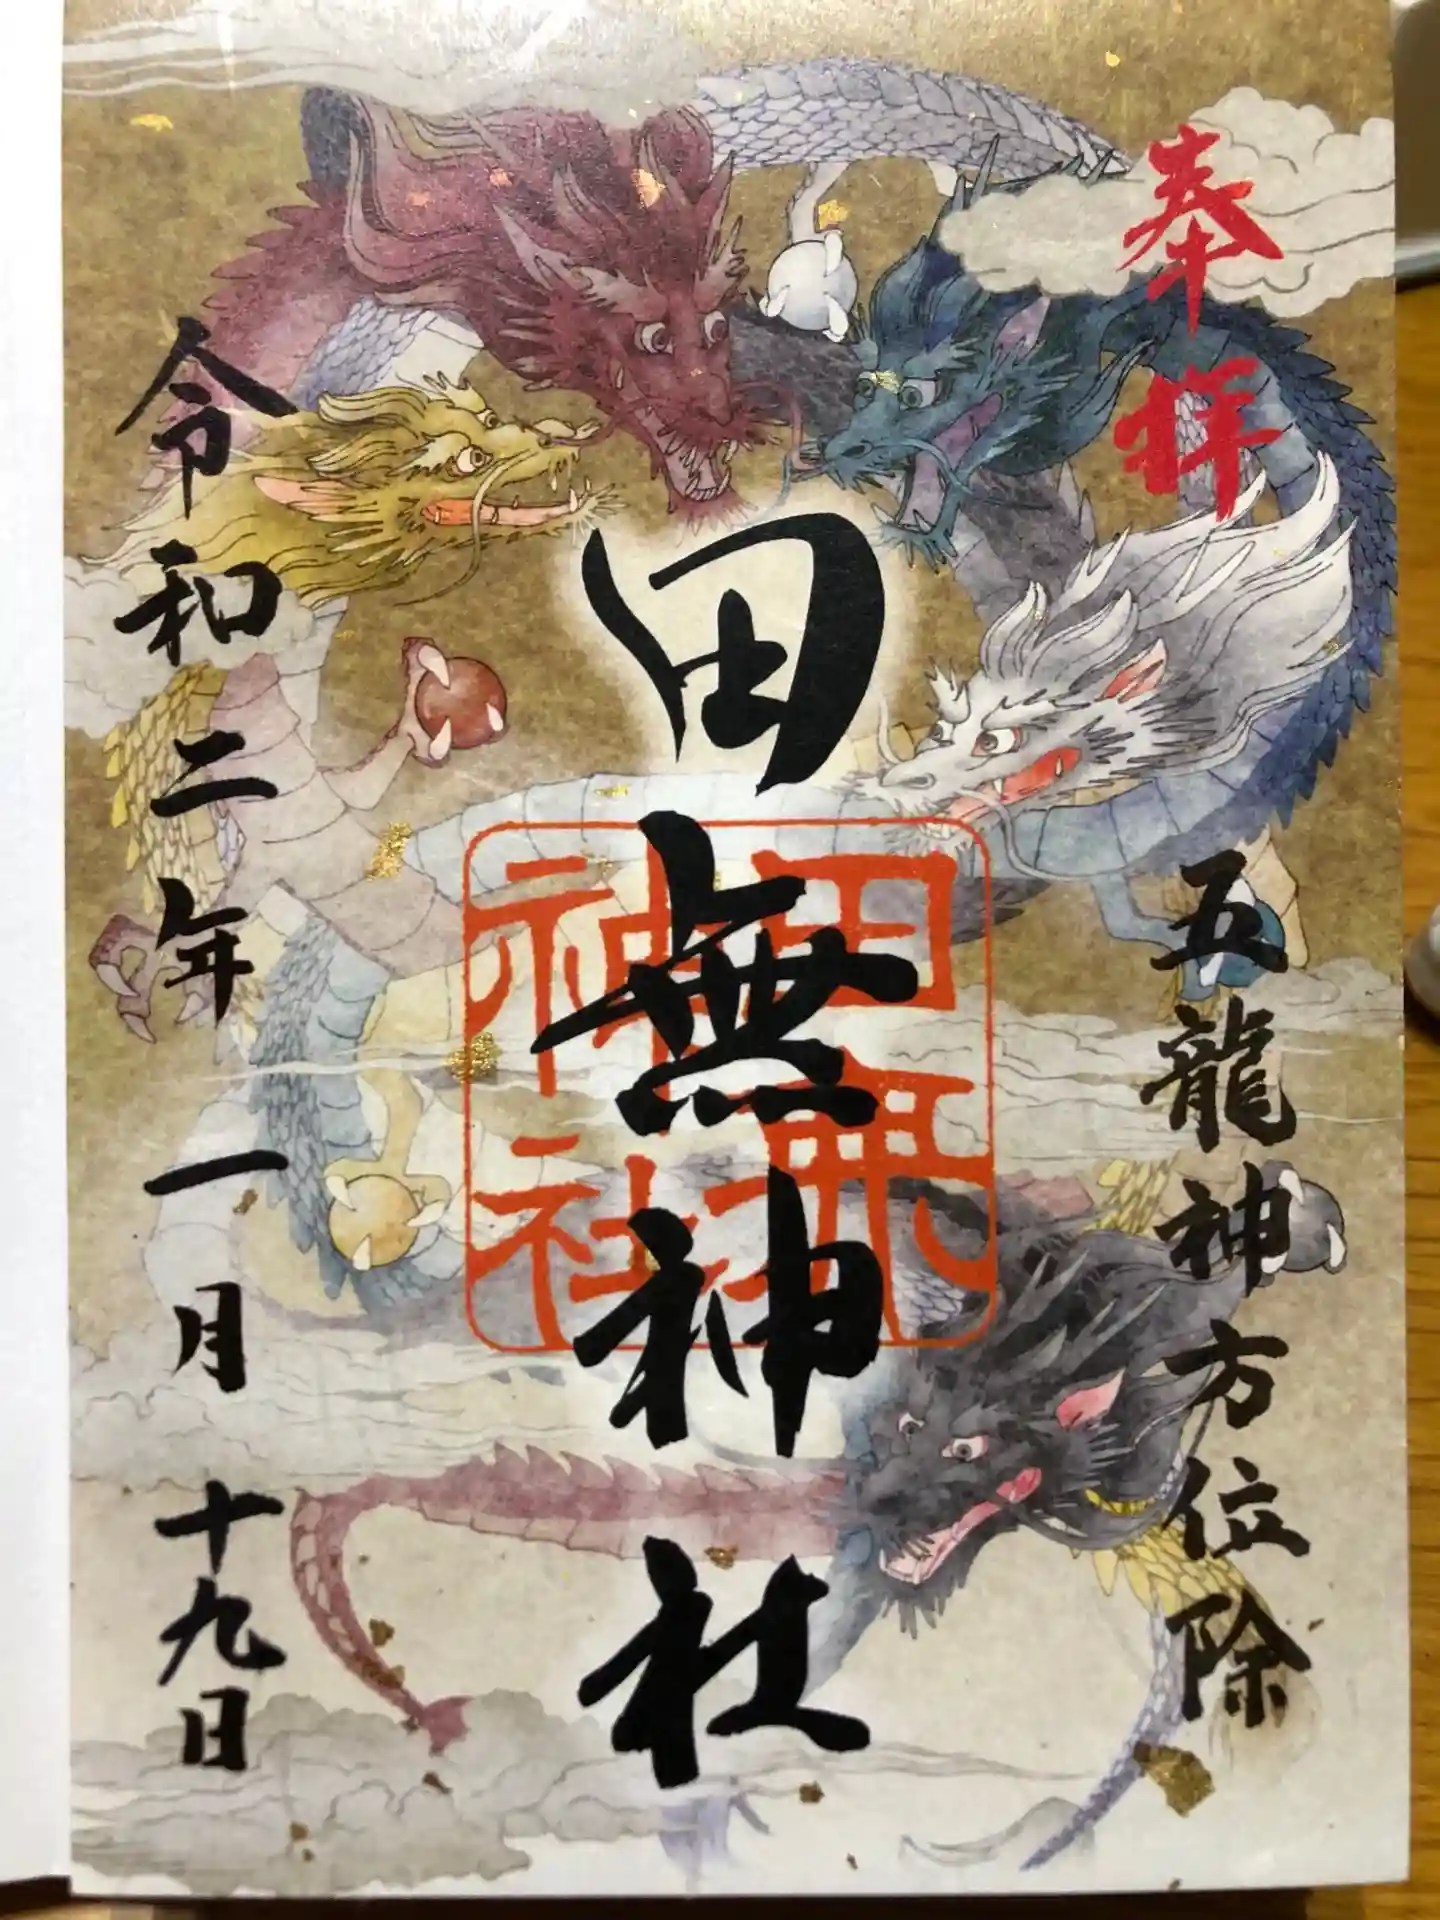 奉拝
五龍神方位除
田無神社
田無神社
令和二年一月十九日